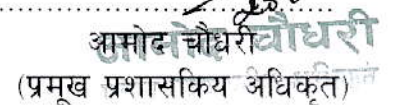 आमोद चौधरी
(प्रमुख प्रशासकिय अधिकृत)